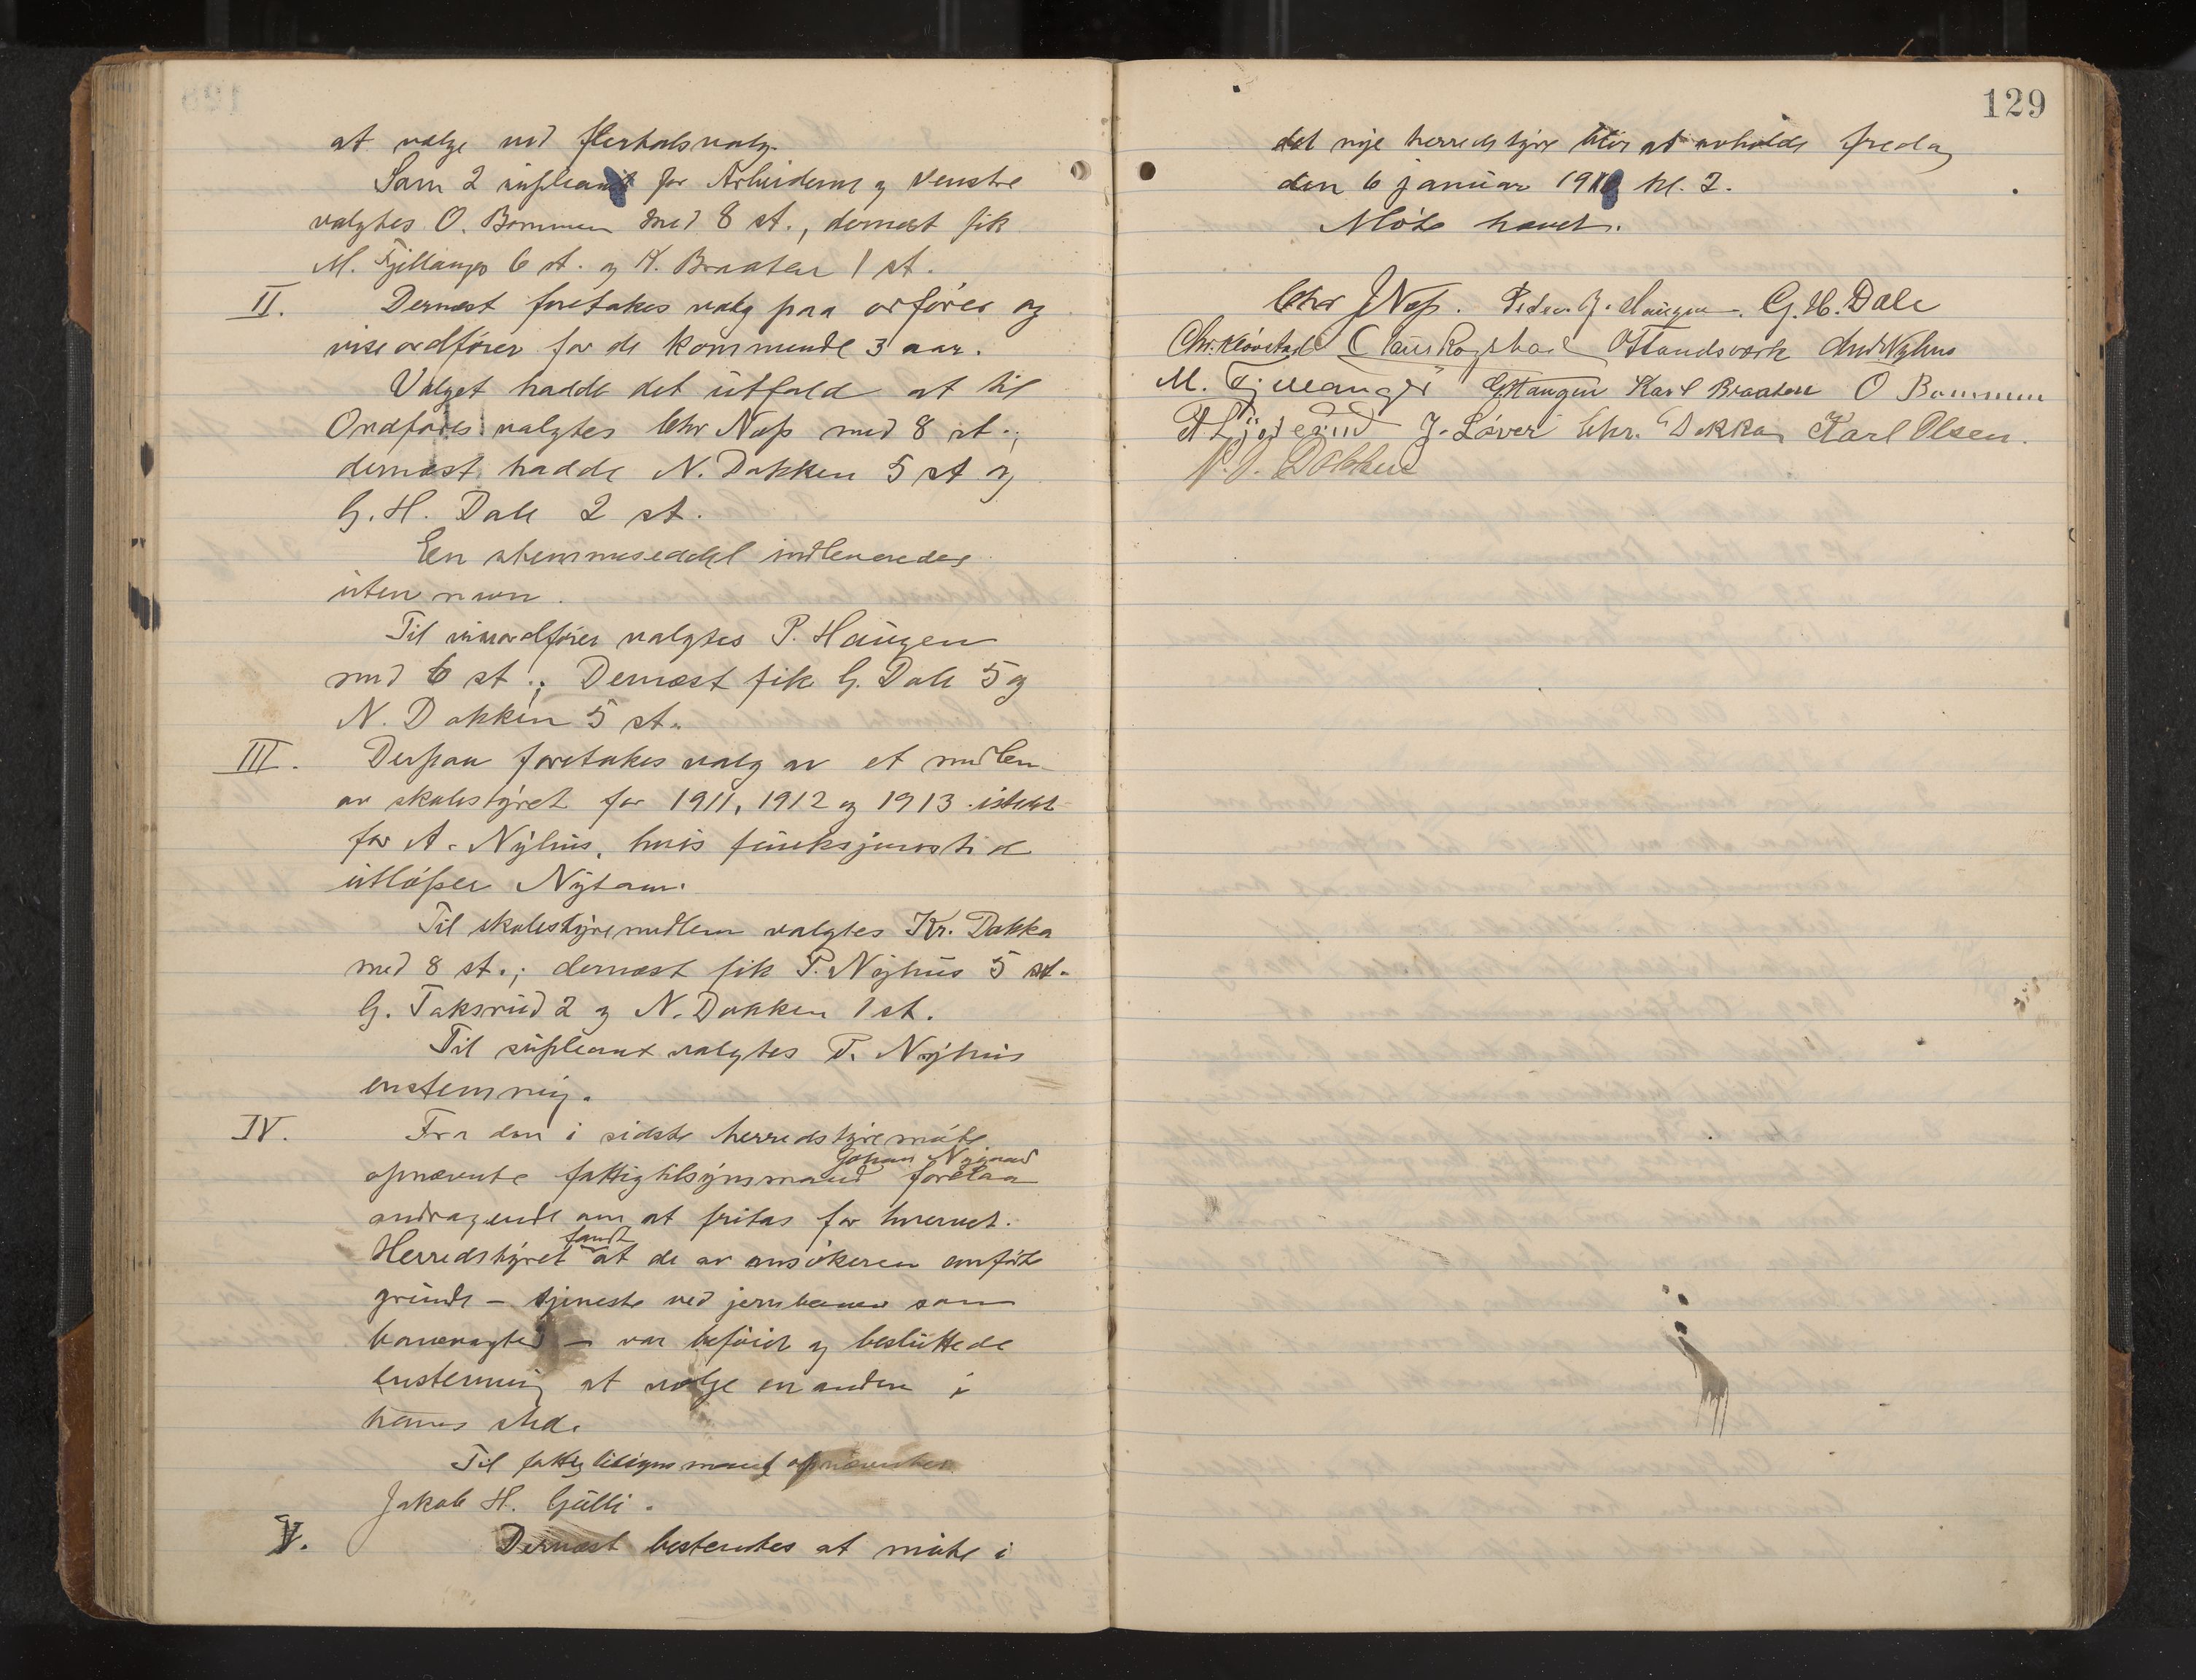 at vælge ved flertalsvalg.
Som 2 supleant for Arbeiderne og Venstre
valgtes O. Bommen med 8 st., dernæst fik
M. Fjellanger 6 st. og K. Braaten 1 st.
II. Dernæst foretakes valg paa orfører og
viseordfører for de kommende 3 aar.
Valget hadde det utfald at til
Ordfører valgtes Chr Næss med 8 st.,
dernæst hadde N. Dokken 5 st og
G. H. Dale 2 st.
En stemmeseddel indleveredes
uten navn.
Til viseordfører valgtes P. Haugen
med 6 st.; Dernæst fik G. Dale 5 og
N. Dokken 5 st.
III. Derpaa foretakes valg av et medlem
av skolestyret for 1911, 1912 og 1913 istedet
for A. Nyhus, hvis funksjonstid
utløper Nytaar.
Til skolestyremedlem valgtes Kr. Dokka
med 8 st.; dernæst fik P. Nyhus 5 st.
G. Taksrud 2 og N. Dokken 1 st.
Til supleant valgtes P. Nyhus
enstemmig.
IV. Fra den i sidste herredstyremøte
opnævnte fattigtilsynsmand Johan forelaa
andragende om at fritas for hvervet.
Herredstyret fandt at de av ansøkeren anførte
grunde – tjeneste ved jernbanen som
banevagter – var beføiet og besluttede
enstemmig at vælge en anden i
hannes sted.
Til fattigtilsynsmand opnævntes
Jakob H. Gulli.
V. Dernæst bestemtes at møte i
129
det nye herredstyre blir at avholde fredag
den 6 januar 1911 kl. 2.
Møte hævet.
Chr J Næss. Peder J. Haugen. G. H. Dale
Chr. Kløvstad Claus Rogstad O Landsværk And Nyhus
M. Fjellanger G Haugen Karl Braaten O Bommen
J. Løver Chr. Dokka Karl Olsen.
N. J. Dokken